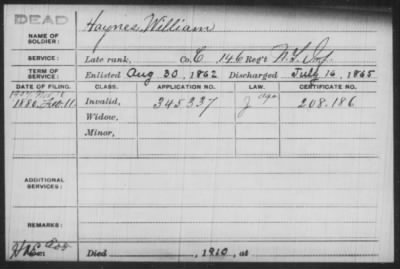 DEAD
NAME OF SOLDIER: Haynes, William
SERVICE: Late rank, Co. E, 146 Reg't N.Y. Inf.
TERM OF SERVICE: Enlisted Aug 30, 1862 Discharged July 16, 1865
DATE OF FILING. CLASS. APPLICATION NO. LAW. CERTIFICATE NO.
1880, Feb. 11. Invalid, 345337 208.186
Widow,
Minor,
ADDITIONAL SERVICES:
REMARKS:
Died , 1910, at